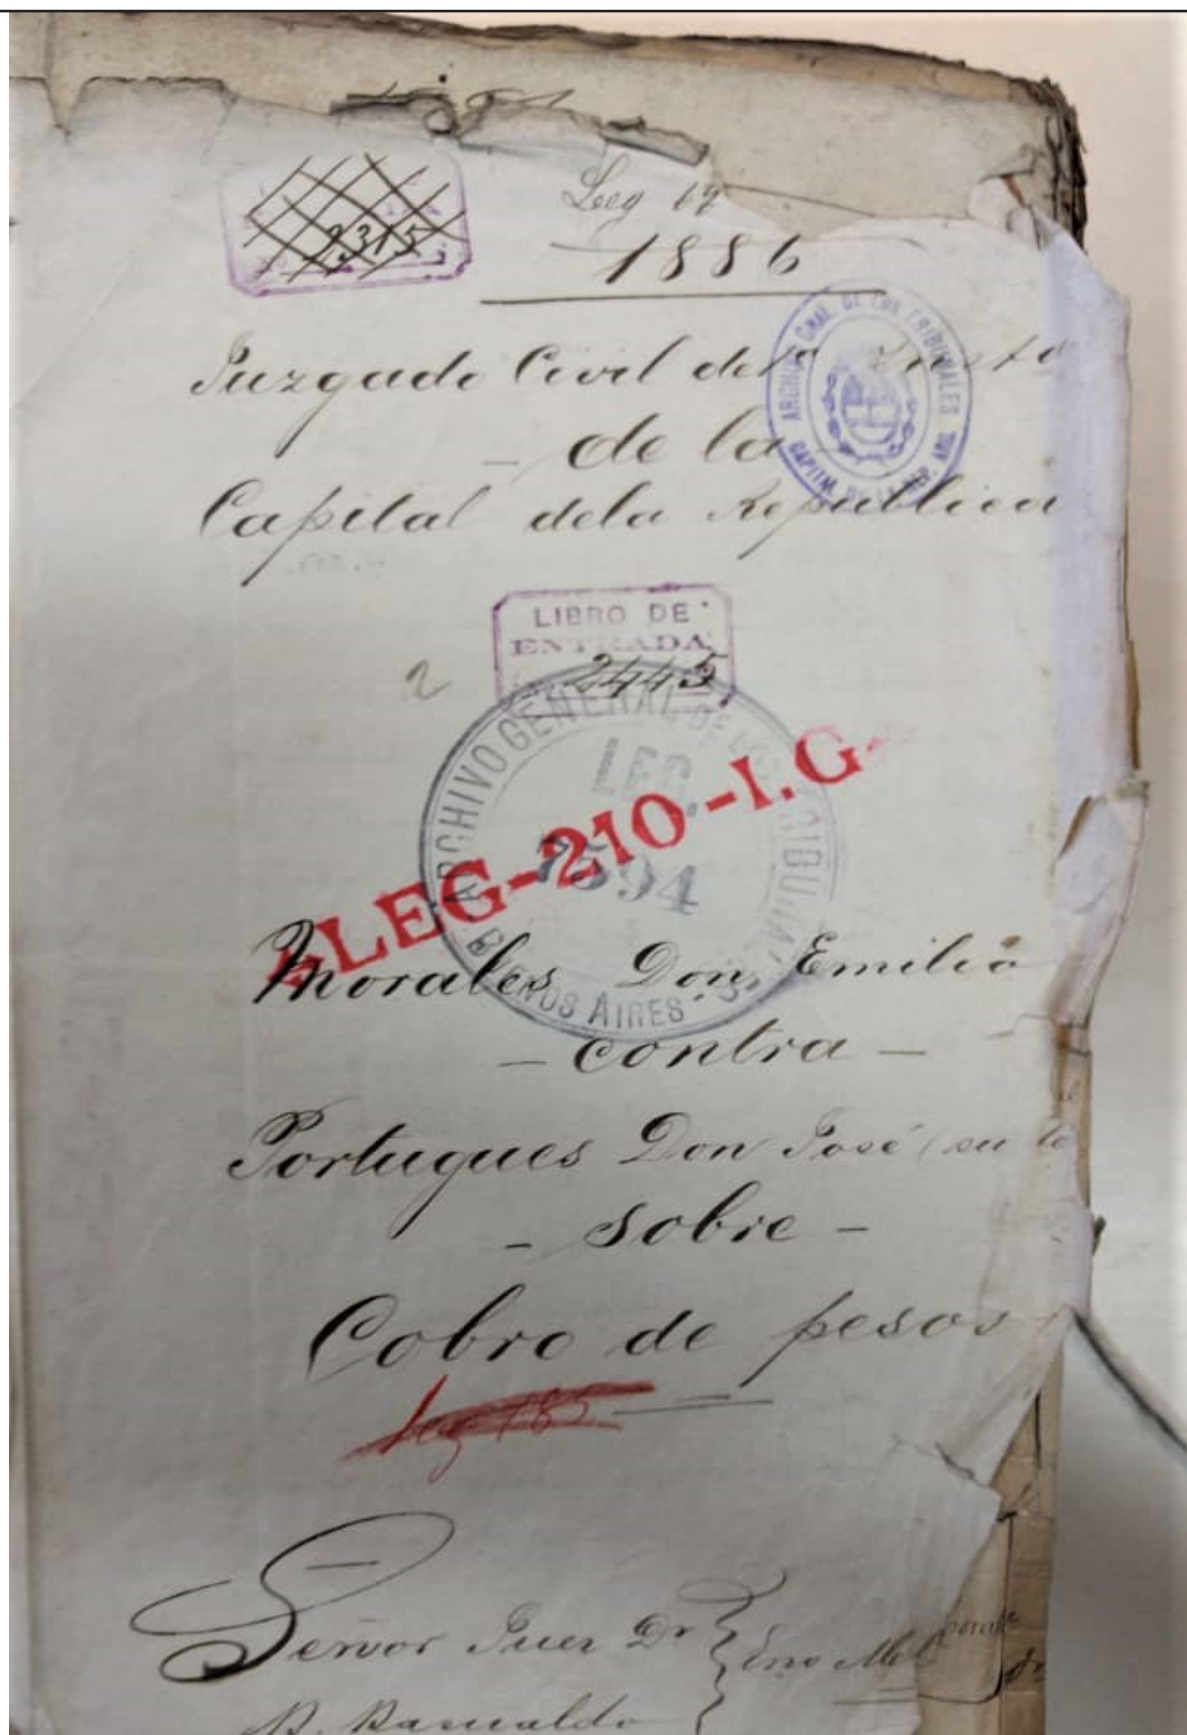 2315
Leg 17
1886
Juzgado Civil de 1ª Insta
ARCHIVO GRAL. DE LOS TRIBUNALES
CAPITAL DE LA REP. ARG.
- de la
Capital dela Republica
LIBRO DE
ENTRADA
2445
2
ARCHIVO GENERAL DE LOS TRIBUNALES
LEG.
7594
BUENOS AIRES
LEG-210-I.G.
Morales Don Emilio
- contra -
Portugues Don José (su te
- sobre -
Cobro de pesos
Leg 185
Señor Juez Dr